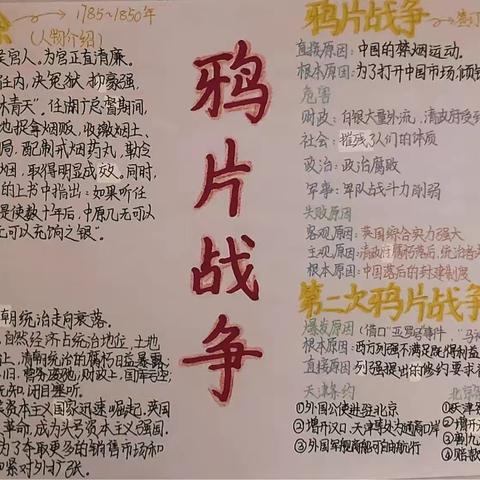 徐 1785~1850年
(人物介绍)
侯官人。为官正直清廉。
任内,决冤狱,抑豪强,
林青天"。任湖广总督期间,
地捉拿烟贩,收缴烟土、
局,配制戒烟药丸,勒令
烟,取得明显成效,同时,
的上书中指出:如果听任
是使数十年后,中原几无可以
无可以充饷之银"。
朝统治走向衰落。
自然经济占统治地位,土地
上,清朝统治的腐朽日益暴露;
旧,营务废弛;财政上,国库
无知,闭目塞听。
资本主义国家迅速崛起,英国
革命,成为头号资本主义强国。
为了夺取更多的销售市场和
加紧对外扩张。
鸦片战争
鸦片战争
直接原因:中国的禁烟运动。
根本原因:为了打开中国市场,倾销
危害
财政:白银大量外流,清政府受到
社会:摧残了人们的体质
政治:政治腐败
军事:军队战斗力削弱
失败原因
客观原因:英国综合实力强大
主观原因:清政府腐朽落后,统治者
根本原因:中国落后的封建制度
第二次鸦片战争
爆发原因:(借口"亚罗号事件","马神
根本原因:西方列强不满足既得利益
直接原因:列强提出的修约要求
天津条约
①外国公使进驻北京
②增开汉口、天津等处为通商口岸
③外国军舰商船可自由航行
北京
①天津
②增开
③割九
④赔款